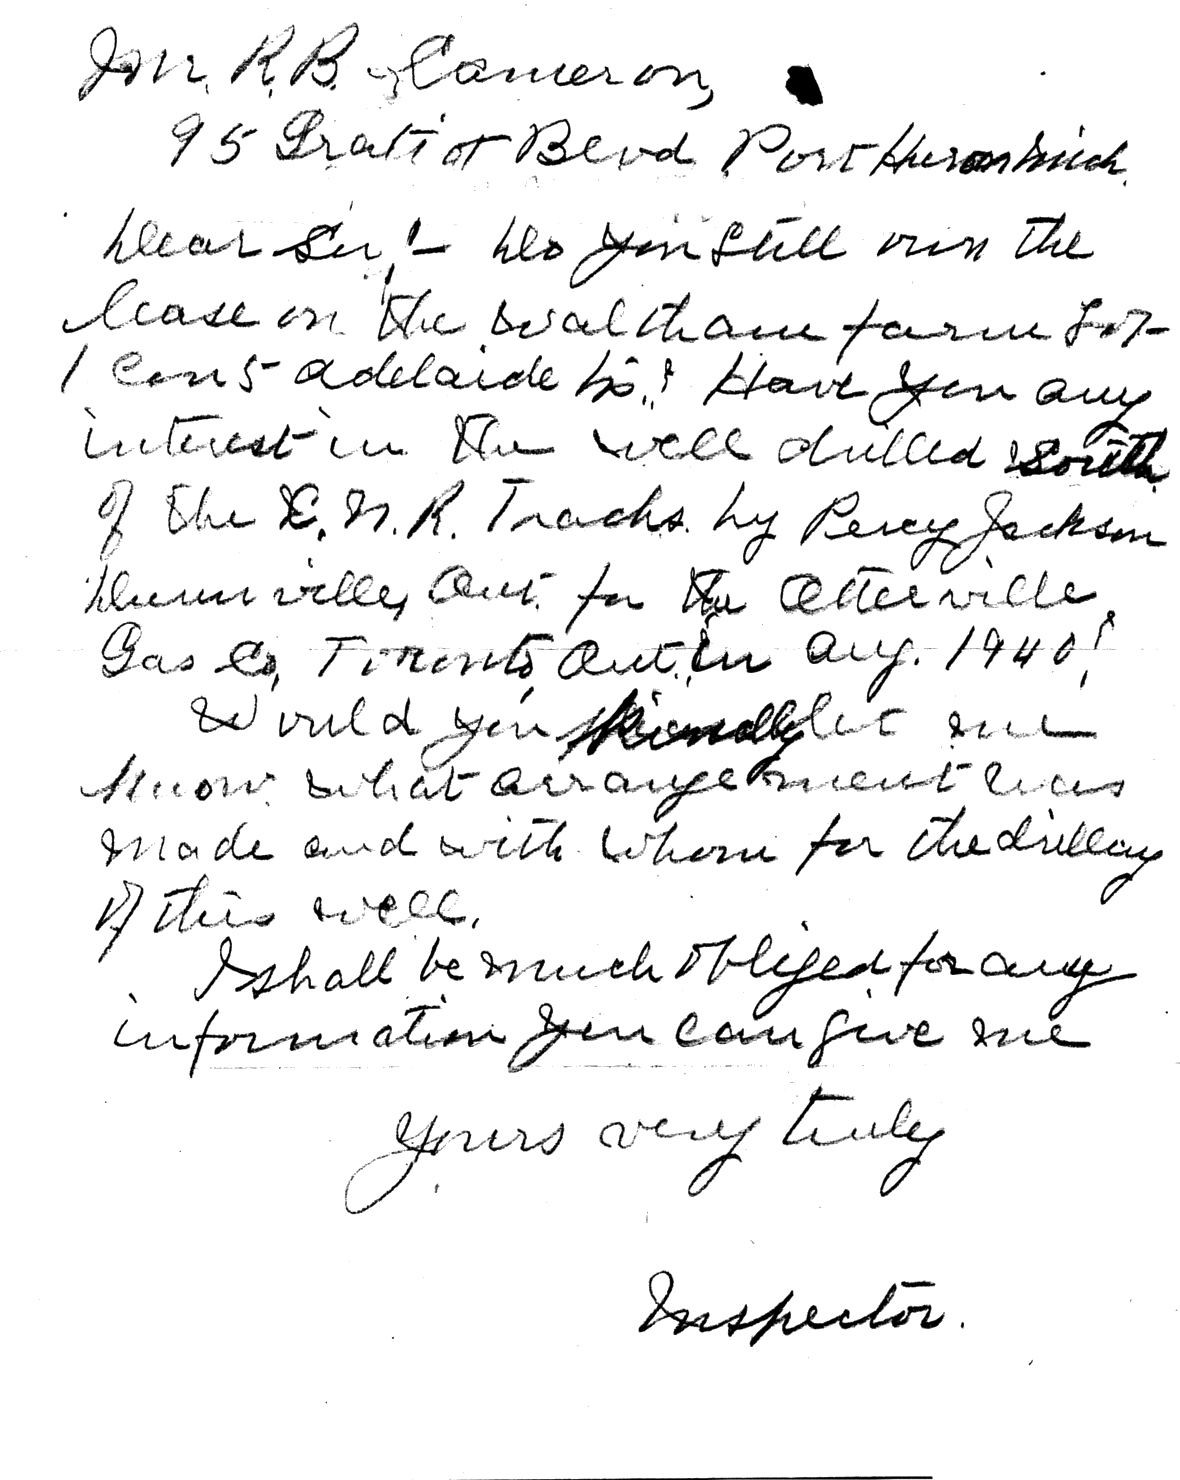 Mr. R. B. Cameron,
95 Gratiot Blvd Port Huron Mich.
Dear Sir,!- Do you still own the
lease on the Waltham farm Lot
1 Con 5 Adelaide Tp.? Have you any
interest in the well drilled south
of the C. N. R. Tracks by Percy Jackson
Dunnville, Ont. for the Otterville
Gas Co, Toronto, Ont. in Aug. 1940?
Would you kindly let me
know what arrangement was
made and with whom for the drilling
of this well.
I shall be much obliged for any
information you can give me
Yours very truly
Inspector.